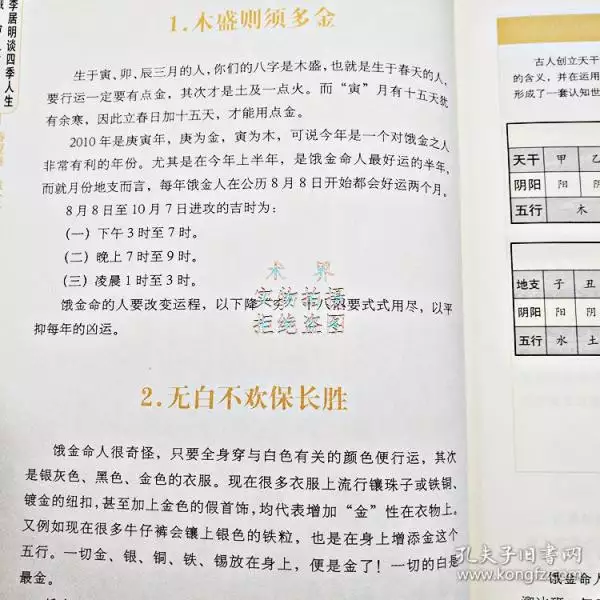 李居明谈四季人生
1.木盛则须多金
生于寅、卯、辰三月的人，你们的八字是木盛，也就是生于春天的人，
要行运一定要有点金，其次才是土及一点火。而“寅”月有十五天犹
有余寒，因此立春日加十五天，才能用点金。
2010年是庚寅年，庚为金，寅为木，可说今年是一个对饿金之人
非常有利的年份。尤其是在今年上半年，是饿金命人最好运的半年，
而就月份地支而言，每年饿金人在公历8月8日开始都会好运两个月，
8月8日至10月7日进攻的吉时为：
（一）下午3时至7时。
（二）晚上7时至9时。
（三）凌晨1时至3时。
饿金命的人要改变运程，以下降
要式式用尽，以平
抑每年的凶运。
术界
实物拍摄
拒绝盗图
2.无白不欢保长胜
饿金命人很奇怪，只要全身穿与白色有关的颜色便行运，其次
是银灰色、黑色、金色的衣服。现在很多衣服上流行镶珠子或铁铜、
镀金的纽扣，甚至加上金色的假首饰，均代表增加“金”性在衣物上。
又例如现在很多牛仔裤会镶上银色的铁粒，也是在身上增添金这个
五行。一切金、银、铜、铁、锡放在身上，便是金了！一切的白是
最金。
古人创立天干
的含义，并在运用
形成了一套认知世
天干 甲 乙
阴阳 阳 阴
五行 木
地支 子 丑
阴阳 阳 阴
五行 水 土
饿金命人
孔夫子旧书网
www.kongfz.com